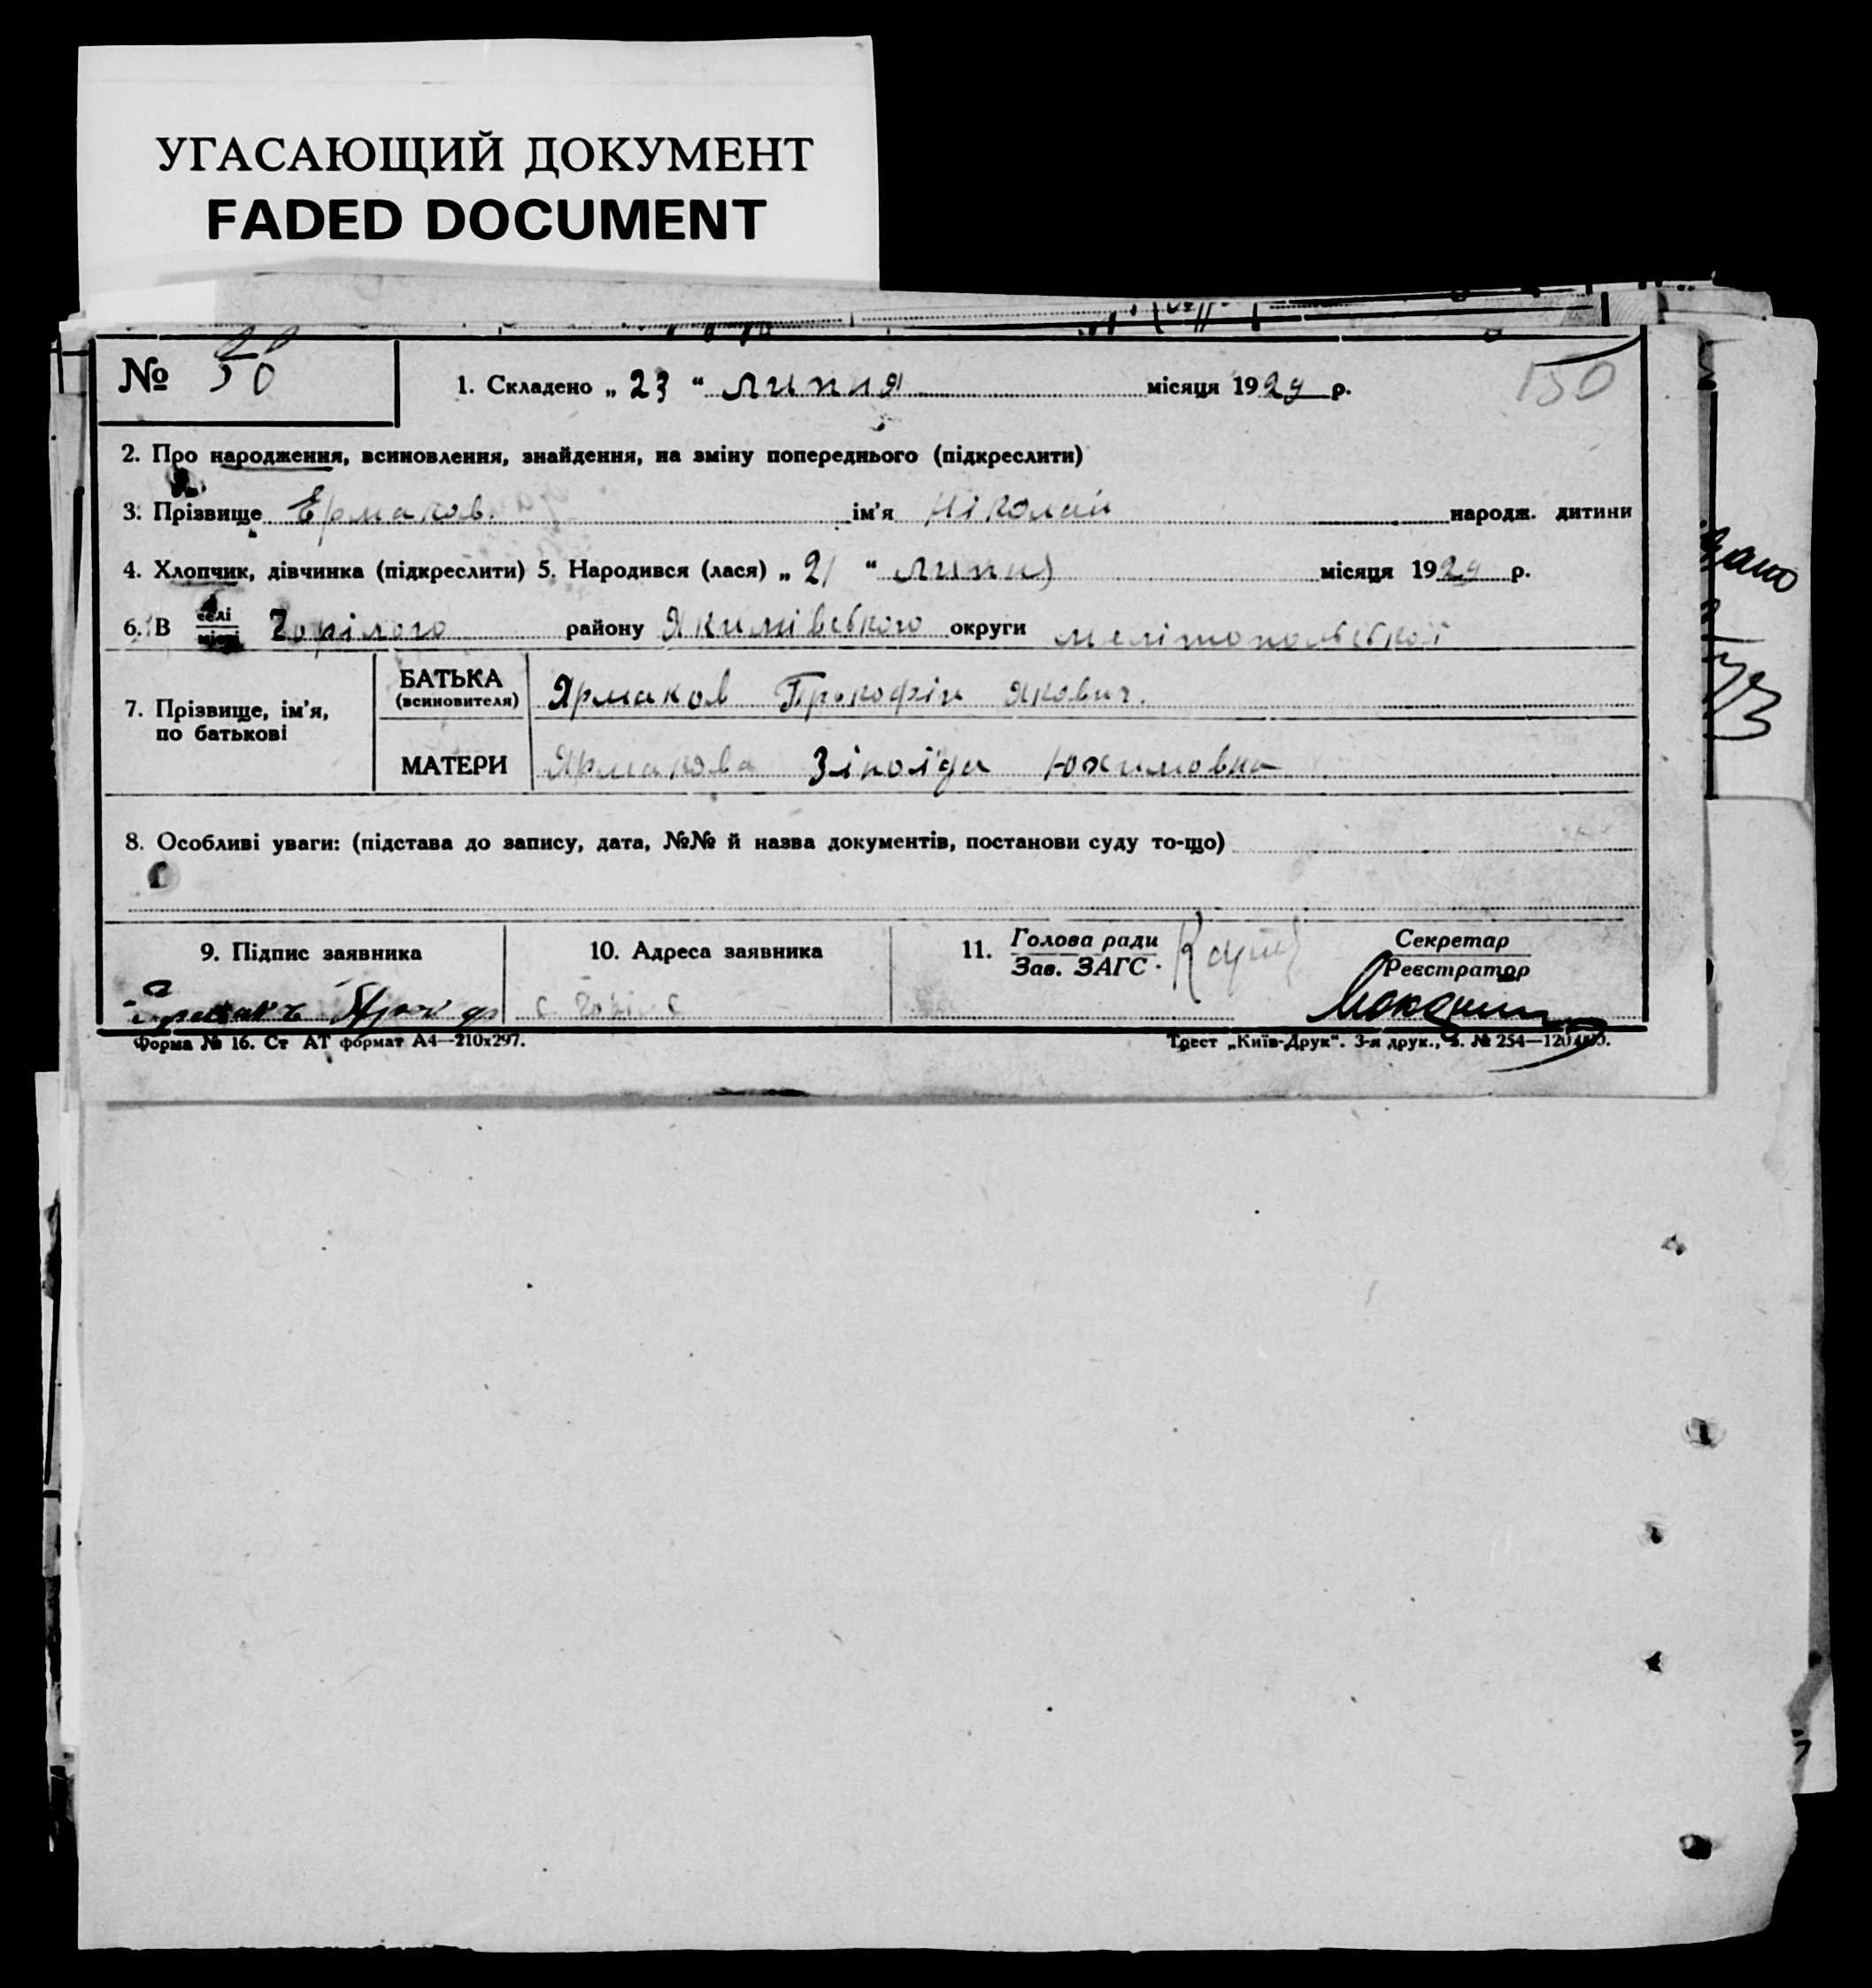 УГАСАЮЩИЙ ДОКУМЕНТ
FADED DOCUMENT
№ 50
1. Складено „ 23 “ липня місяця 1929 р.
150
2. Про народження, всиновлення, знайдення, на зміну попереднього (підкреслити)
3. Прізвище Ермаков. ім'я Ніколай народж. дитини
4. Хлопчик, дівчинка (підкреслити) 5. Народився (лася) „ 21 “ липня місяця 1929 р.
6. В селі місті Горілого району Якимівського округи мелітопольської
7. Прізвище, ім'я, по батькові
БАТЬКА (всиновителя) Ярмаков Прокофій Якович.
МАТЕРИ Ярмакова Зіноїда Юхимовна
8. Особливі уваги: (підстава до запису, дата, №№ й назва документів, постанови суду то-що)
9. Підпис заявника
10. Адреса заявника
11. Голова ради Зав. ЗАГС.
Секретар Реєстратор
Форма № 16. Ст АТ формат А4—210х297.
Трест „Київ-Друк“. 3-я друк., з. № 254—120